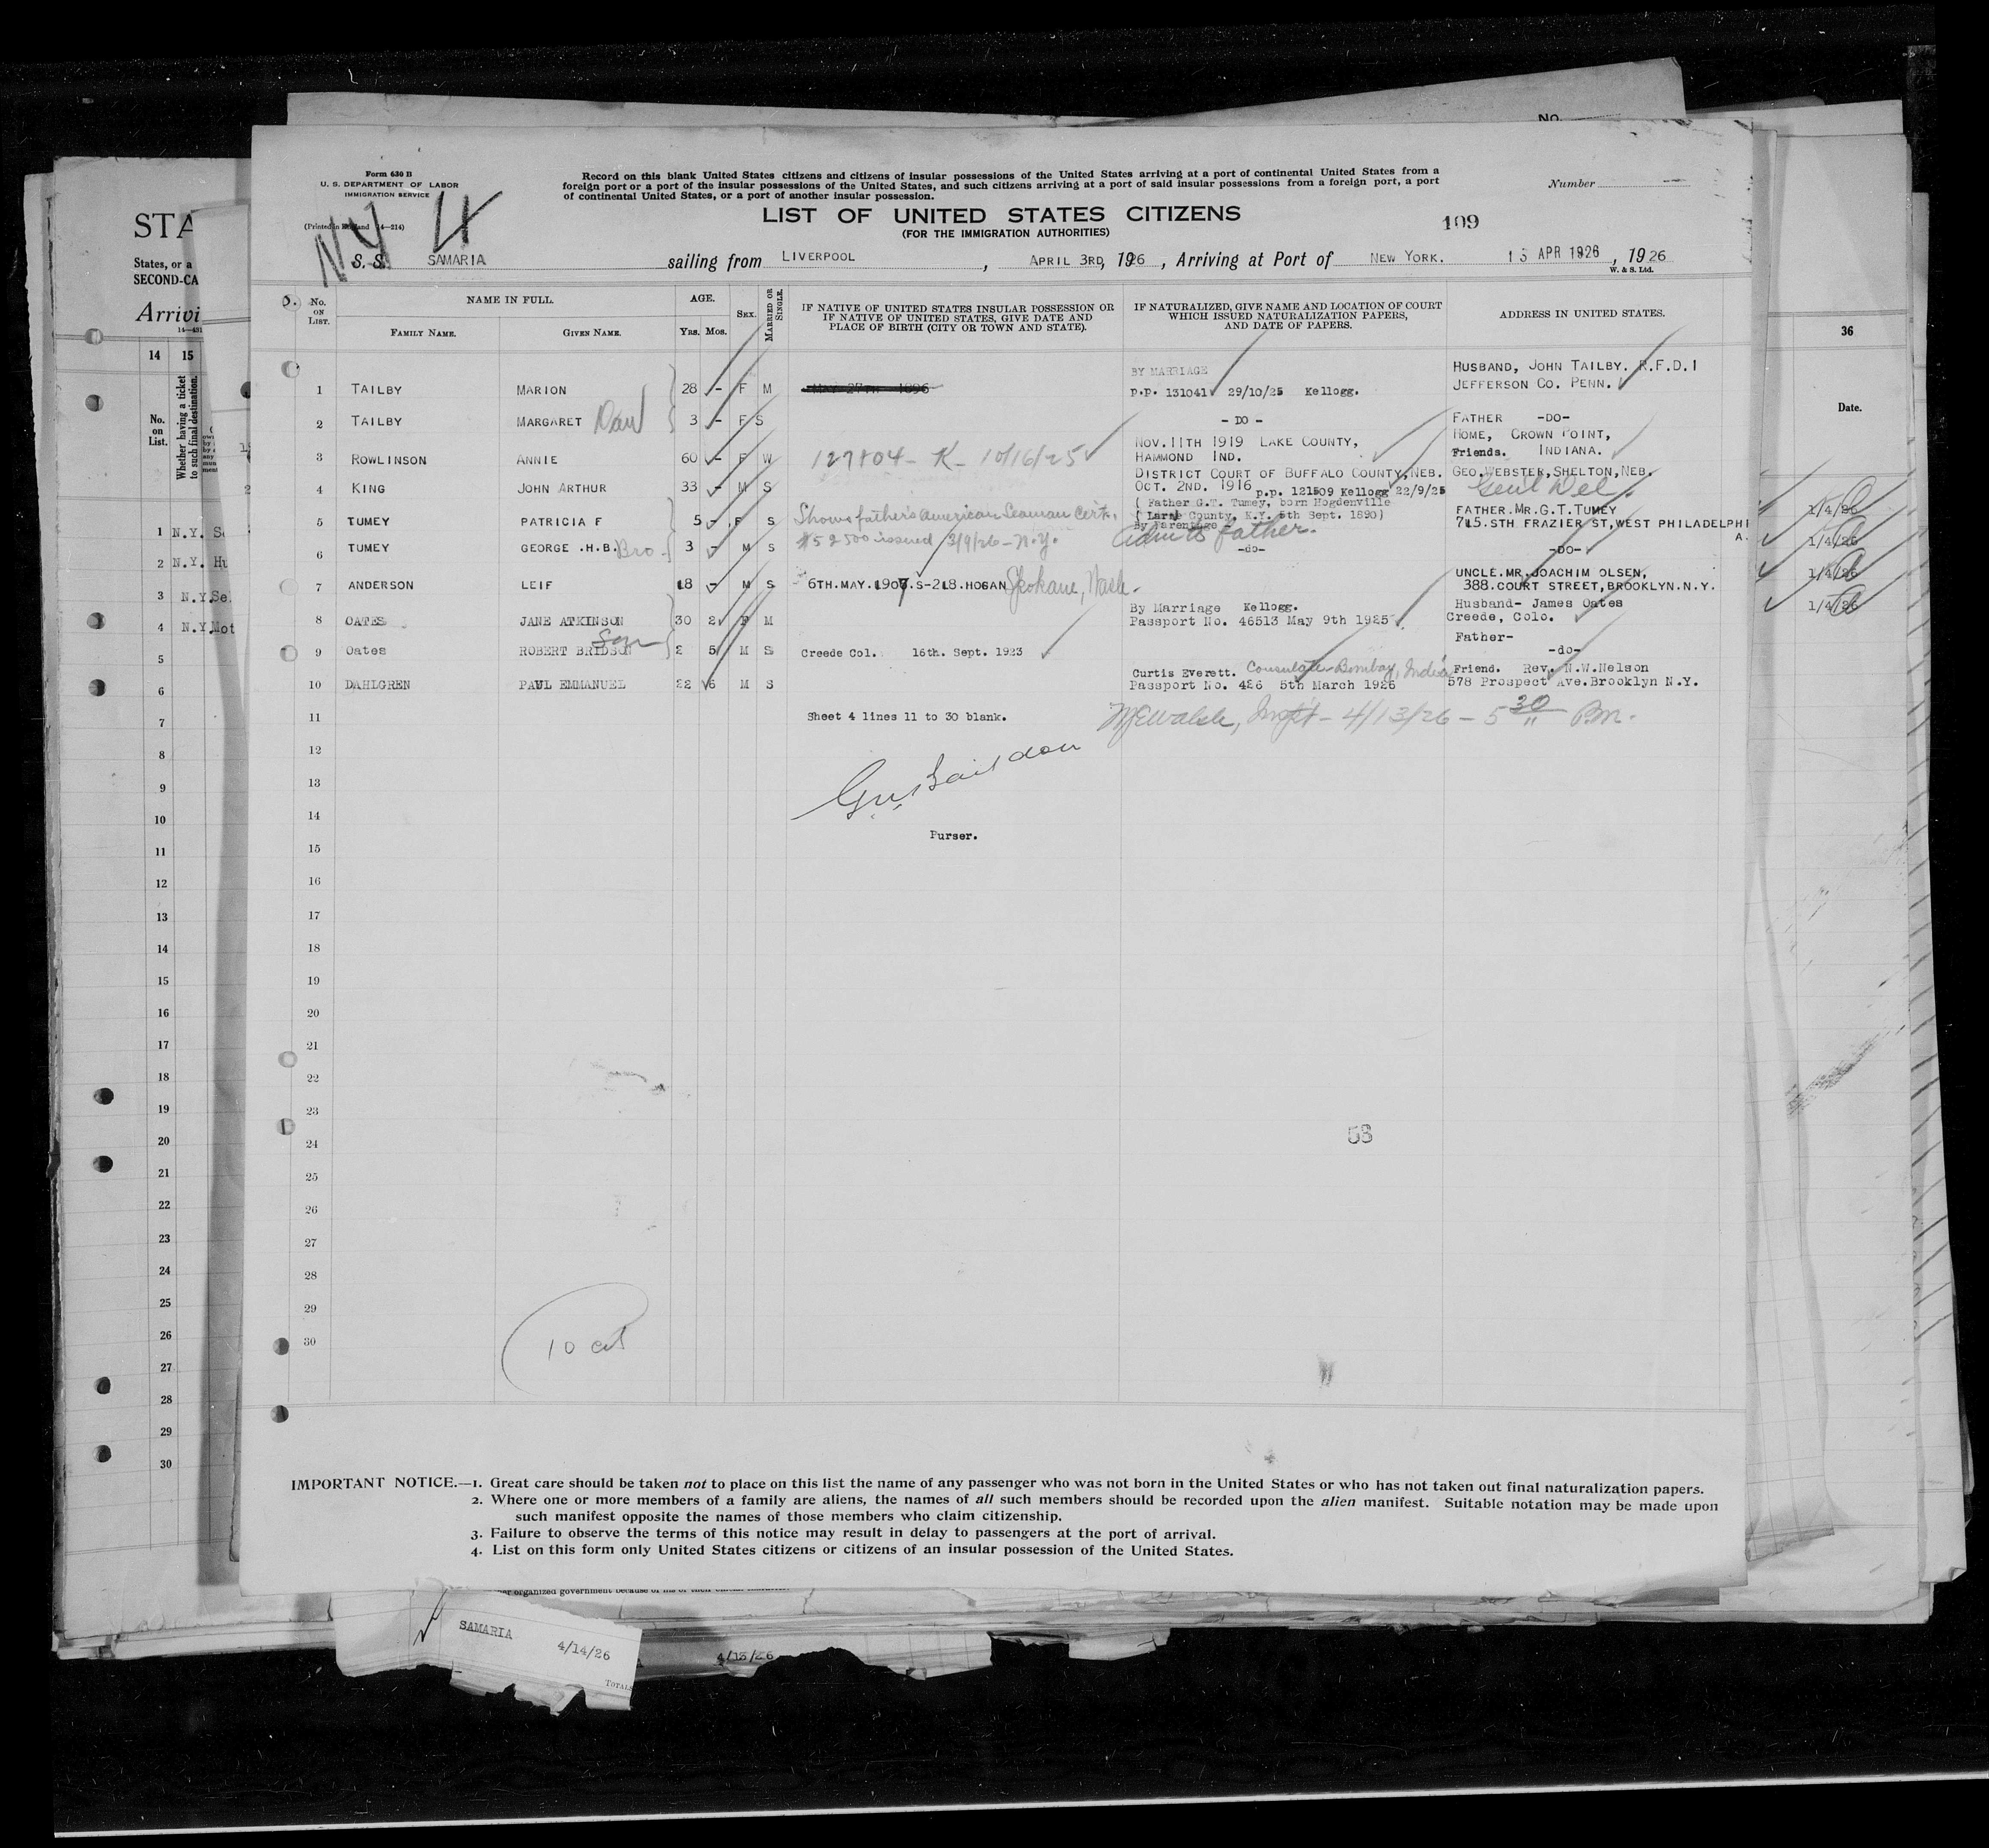 No.
Form 630 B
U. S. DEPARTMENT OF LABOR
IMMIGRATION SERVICE
Record on this blank United States citizens and citizens of insular possessions of the United States arriving at a port of continental United States from a
foreign port or a port of the insular possessions of the United States, and such citizens arriving at a port of said insular possessions from a foreign port, a port
of continental United States, or a port of another insular possession.
Number
NY 4
LIST OF UNITED STATES CITIZENS
109
(FOR THE IMMIGRATION AUTHORITIES)
S. S. SAMARIA sailing from LIVERPOOL, APRIL 3RD, 1926, Arriving at Port of NEW YORK. 13 APR 1926, 1926
W. & S. Ltd.
No. ON LIST.
NAME IN FULL.
FAMILY NAME. GIVEN NAME.
AGE.
YRS. MOS.
SEX.
MARRIED OR SINGLE.
IF NATIVE OF UNITED STATES INSULAR POSSESSION OR
IF NATIVE OF UNITED STATES, GIVE DATE AND
PLACE OF BIRTH (CITY OR TOWN AND STATE).
IF NATURALIZED, GIVE NAME AND LOCATION OF COURT
WHICH ISSUED NATURALIZATION PAPERS,
AND DATE OF PAPERS.
ADDRESS IN UNITED STATES.
BY MARRIAGE HUSBAND, JOHN TAILBY. R.F.D.1
1 TAILBY MARION 28 - F M MAY 27TH 1896 p.p. 131041 29/10/25 Kellogg. JEFFERSON CO. PENN.
2 TAILBY MARGARET Dau 3 - F S - DO - FATHER -DO-
NOV. 11TH 1919 LAKE COUNTY, HOME, CROWN POINT,
3 ROWLINSON ANNIE 60 - F W 127804 - K - 10/16/25 HAMMOND IND. Friends. INDIANA.
DISTRICT COURT OF BUFFALO COUNTY, NEB. GEO. WEBSTER, SHELTON, NEB.
4 KING JOHN ARTHUR 33 - M S OCT. 2ND. 1916 p.p. 121509 Kellogg 22/9/25 Genl Del.
( Father G.T. Tumey, born Hogdenville
5 TUMEY PATRICIA F 5 - F S Shows father's American Seaman Cert. ( Larne County, K.Y. 5th Sept. 1890) FATHER.MR.G.T.TUMEY
By Parentage - 715.STH FRAZIER ST,WEST PHILADELPHI
A.
6 TUMEY GEORGE .H.B. Bro 3 - M S #52500 issued 3/9/26 - N.Y. Admits father.
-do- -DO-
7 ANDERSON LEIF 18 - M S 6TH.MAY.1907.S-218.HOGAN Spokane, Wash. UNCLE.MR.JOACHIM OLSEN,
388.COURT STREET,BROOKLYN.N.Y.
By Marriage Kellogg. Husband- James Oates
8 OATES JANE ATKINSON 30 2 F M Passport No. 46513 May 9th 1925 Creede, Colo.
Son Father-
9 Oates ROBERT BRIDSON 2 5 M S Creede Col. 16th. Sept. 1923 -do-
Curtis Everett. Consulate - Bombay, India Friend. Rev. N.W.Nelson
10 DAHLGREN PAUL EMMANUEL 22 6 M S Passport No. 426 5th March 1926 578 Prospect Ave.Brooklyn N.Y.
11 Sheet 4 lines 11 to 30 blank. Inspt - 4/13/26 - 5 30 P.m.
12
13
14
Purser.
15
16
17
18
19
20
21
22
23
24 53
25
26
27
28
29
30
10
IMPORTANT NOTICE.—1. Great care should be taken not to place on this list the name of any passenger who was not born in the United States or who has not taken out final naturalization papers.
2. Where one or more members of a family are aliens, the names of all such members should be recorded upon the alien manifest. Suitable notation may be made upon
such manifest opposite the names of those members who claim citizenship.
3. Failure to observe the terms of this notice may result in delay to passengers at the port of arrival.
4. List on this form only United States citizens or citizens of an insular possession of the United States.
STA
States, or a
SECOND-CA
Arrivi
14 15
No. on List.
Whether having a ticket to such final destination.
1 N.Y.
2 N.Y. Hu
3 N.Y. Se
4 N.Y. Mot
5
6
7
8
9
10
11
12
13
14
15
16
17
18
19
20
21
22
23
24
25
26
27
28
29
30
36
Date.
1/4/26
1/4/26
1/4/26
1/4/26
SAMARIA 4/14/26
TOTALS
4/13/26